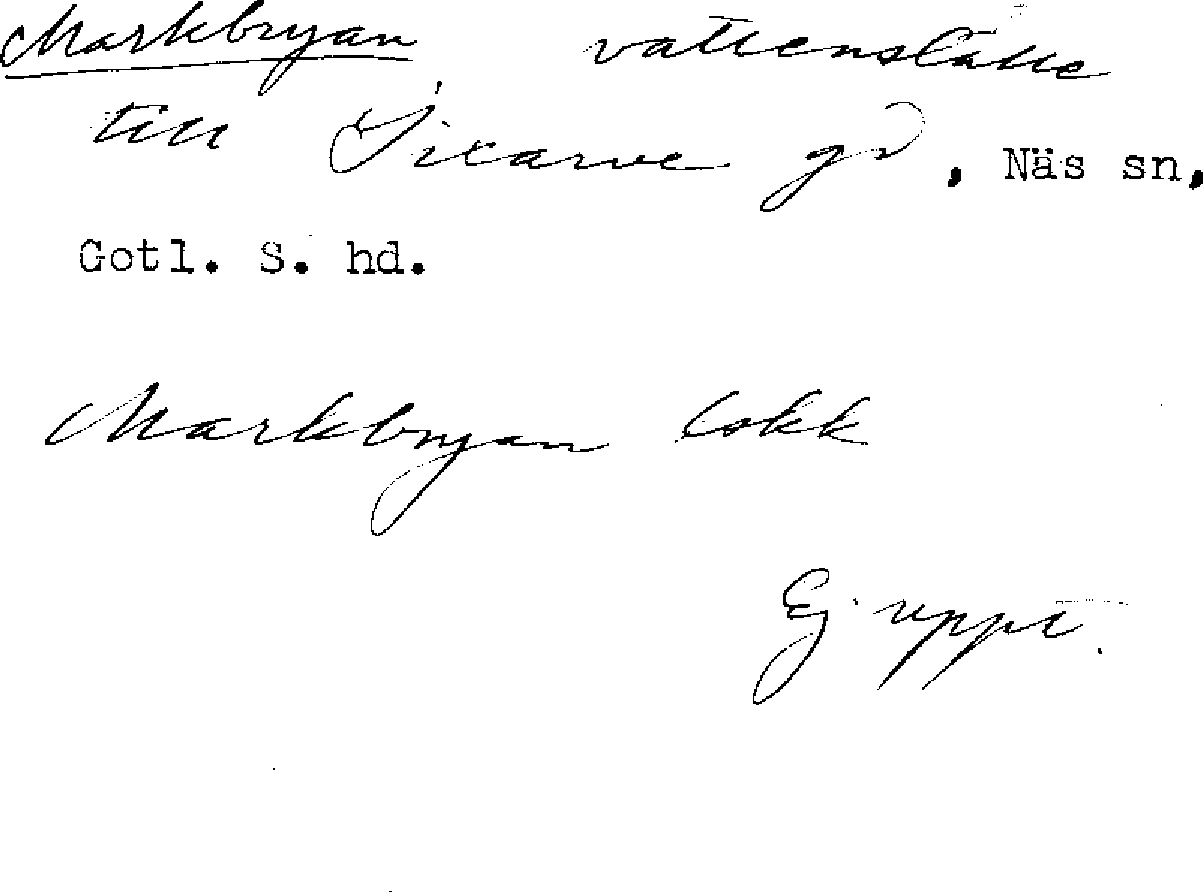 Markbryan vattenställe
till Sixarve gd, Näs sn,
Gotl. S. hd.
Markbryan
Ej uppt.